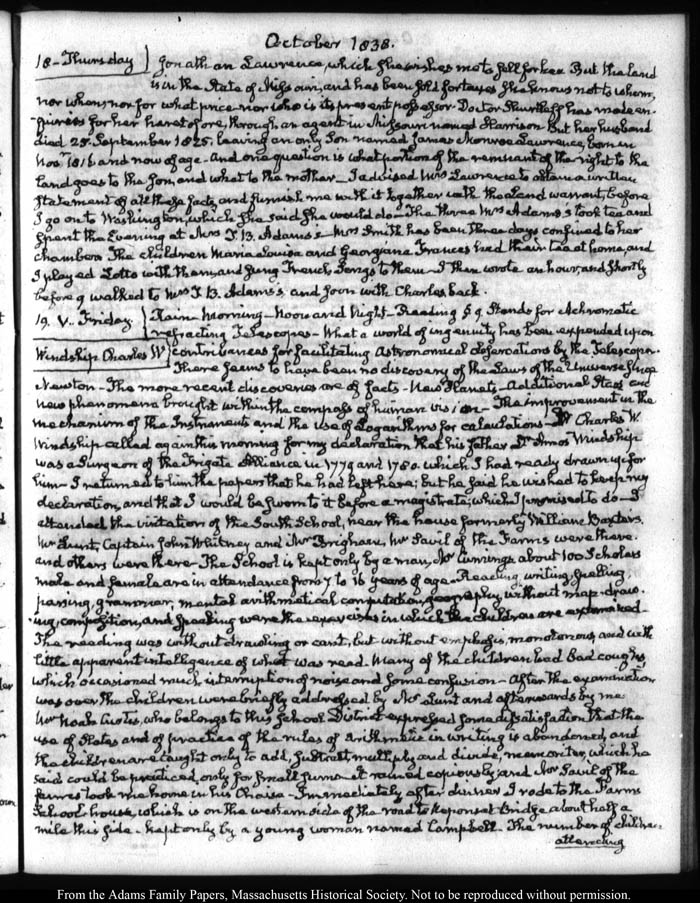 October 1838.
18- Thursday Jonathan Lawrence, which she wishes me to sell for her. But the land
is in the State of Missouri, and has been sold for taxes she knows not to whom,
nor when, nor for what price- nor who is its present possessor. Doctor Shurtleff has made en-
quiries for her heretofore, through an agent in Missouri named Harrison But her husband
died 25. September 1825. leaving an only Son named James Monroe Lawrence, born in
Novr 1816 and now of age- And one question is what portion of the remnant of the right to the
land goes to the Son, and what to the mother- I advised Mrs Lawrence to obtain a written
statement of all these facts, and furnish me with it together with the Land warrant, before
I go on to Washington, which she said she would do- The three Mrs Adams's took tea and
spent the Evening at Mrs T. B. Adams's- Mrs Smith has been three days confined to her
chamber. The children Maria Louisa and Georgiana Frances had their tea at home, and
I played Lotto with them, and sung French Songs to them- I then wrote an hour, and shortly
before 9 walked to Mrs T. B. Adams's and soon with Charles back.
19. V. Friday Rain- Morning- Noon and Night- Reading §9. Stands for Achromatic
refracting Telescopes- What a world of ingenuity has been expended upon
Windship Charles W contrivances for facilitating Astronomical observations by the Telescope.
There seems to have been no discovery of the Laws of the Universe since
Newton- The more recent discoveries are of facts- New Planets- Additional Stars and
new phenomena brought within the compass of human vision- The improvement in the
mechanism of the Instruments and the use of Logarithms for calculations- Dr Charles W.
Windship called again this morning for my declaration that his father Dr Amos Windship
was a Surgeon of the Frigate Alliance in 1779 and 1780. which I had ready drawn up for
him- I returned to him the papers that he had left here; but he said he wished to keep my
declaration, and that I would be sworn to it before a magistrate; which I promised to do- I
attended the visitation of the South School, near the house formerly William Baxter's.
Mr Lunt, Captain John Whitney and Mr Brigham, Mr Savil of the Farms were there.
and others were there- The School is kept only by a man, Mr Cumings about 100 Scholars
male and female are in attendance from 7 to 16 years of age- Reading, writing, spelling,
parsing, grammar, mental arithmetical computation, geography without map-draw-
ing, composition, and speaking were the exercises in which the children are examined-
The reading was without drawling or cant, but without emphasis, monotonous, and with
little apparent intelligence of what was read. Many of the children had bad coughs,
which occasioned much interruption of noise and some confusion- After the examination
was over the children were briefly addressed by Mr Lunt and afterwards by me
Mr Noah Curtis, who belongs to this School District expressed some dissatisfaction that the
use of Slates and of practice of the rules of arithmetic in writing is abandoned, and
the children are taught only to add, subtract, multiply and divide, memoriter, which he
said could be practiced, only for small sums- it rained copiously and Mr Savil of the
farms took me home in his Chaise- Immediately after dinner I rode to the Farms
School house, which is on the western side of the road to Neponset Bridge about half a
mile this side- kept only by a young woman named Campbell- The number of children
attending
From the Adams Family Papers, Massachusetts Historical Society. Not to be reproduced without permission.